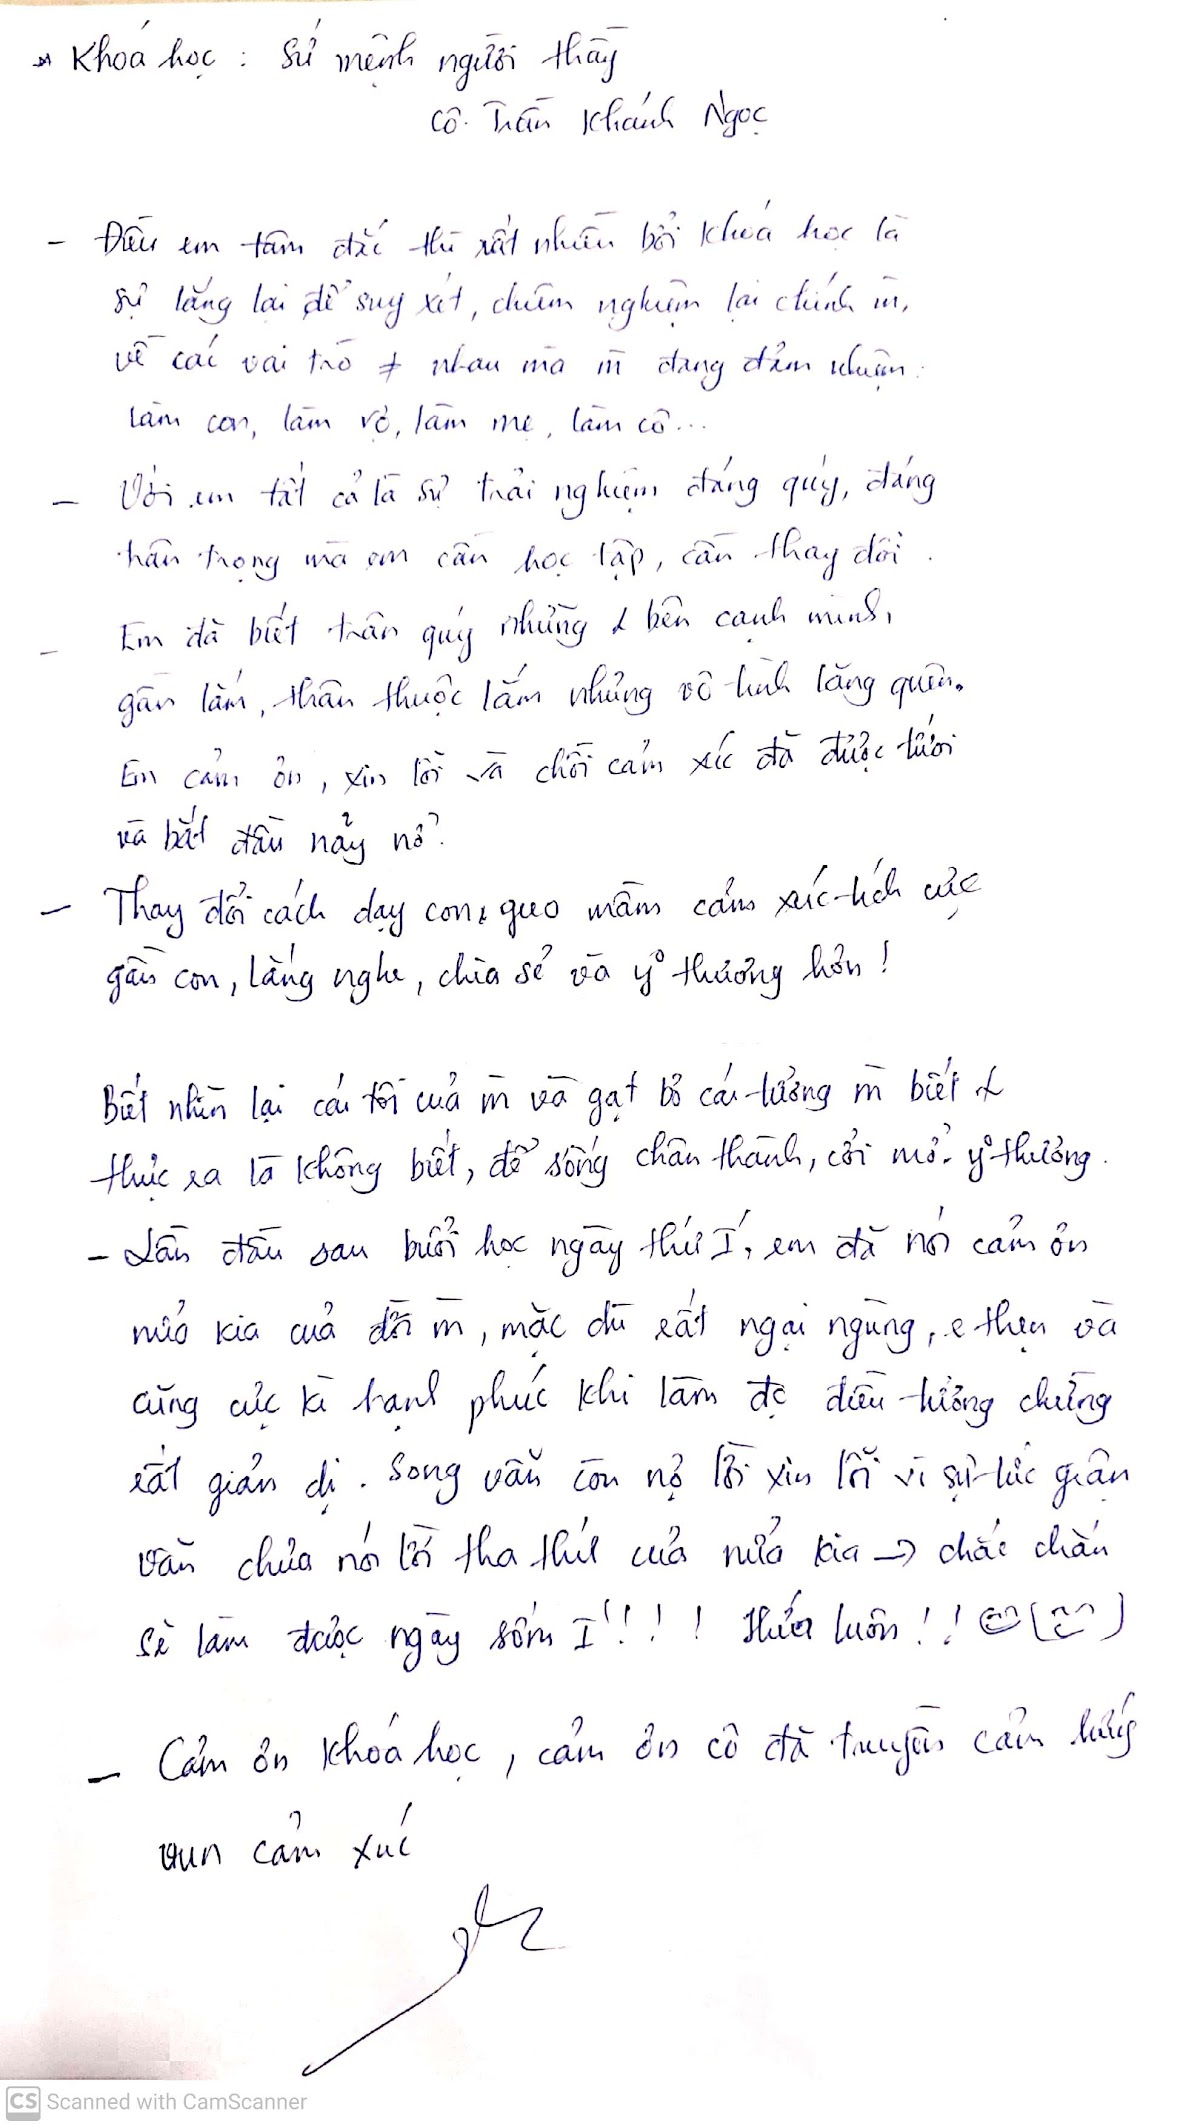 * Khoá học : Sứ mệnh người thầy
Cô. Trần Khánh Ngọc
- Điều em tâm đắc thì rất nhiều bởi khoá học là
sự lắng lại để suy xét, chiêm nghiệm lại chính m̀,
về các vai trò ≠ nhau mà m̀ đang đảm nhuận:
làm con, làm vợ, làm mẹ, làm cô...
- Với em tất cả là sự trải nghiệm đáng quý, đáng
trân trọng mà em cần học tập, cần thay đổi.
- Em đã biết trân quý những bên cạnh mình,
gần lắm, thân thuộc lắm nhưng vô tình lãng quên.
Em cảm ơn, xin lỗi và chồi cảm xúc đã được tưới
và bắt đầu nảy nở.
- Thay đổi cách dạy con, gieo mầm cảm xúc tích cực
gần con, lắng nghe, chia sẻ và yº thương hơn!
Biết nhìn lại cái tôi của m̀ và gạt bỏ cái tưởng m̀ biết
thực ra là không biết, để sống chân thành, cởi mở. yº thương.
- Lần đầu sau buổi học ngày thứ I, em đã nói cảm ơn
nửa kia của đời m̀, mặc dù rất ngại ngùng, e thẹn và
cũng cực kì hạnh phúc khi làm đc điều tưởng chừng
rất giản dị. Song vẫn còn nợ lời xin lỗi vì sự tức giận
vẫn chưa nói lời tha thứ của nửa kia → chắc chắn
sẽ làm được ngày sớm I !!! Hứa luôn!!
- Cảm ơn khoá học, cảm ơn cô đã truyền cảm hứng
vun cảm xúc
CS Scanned with CamScanner